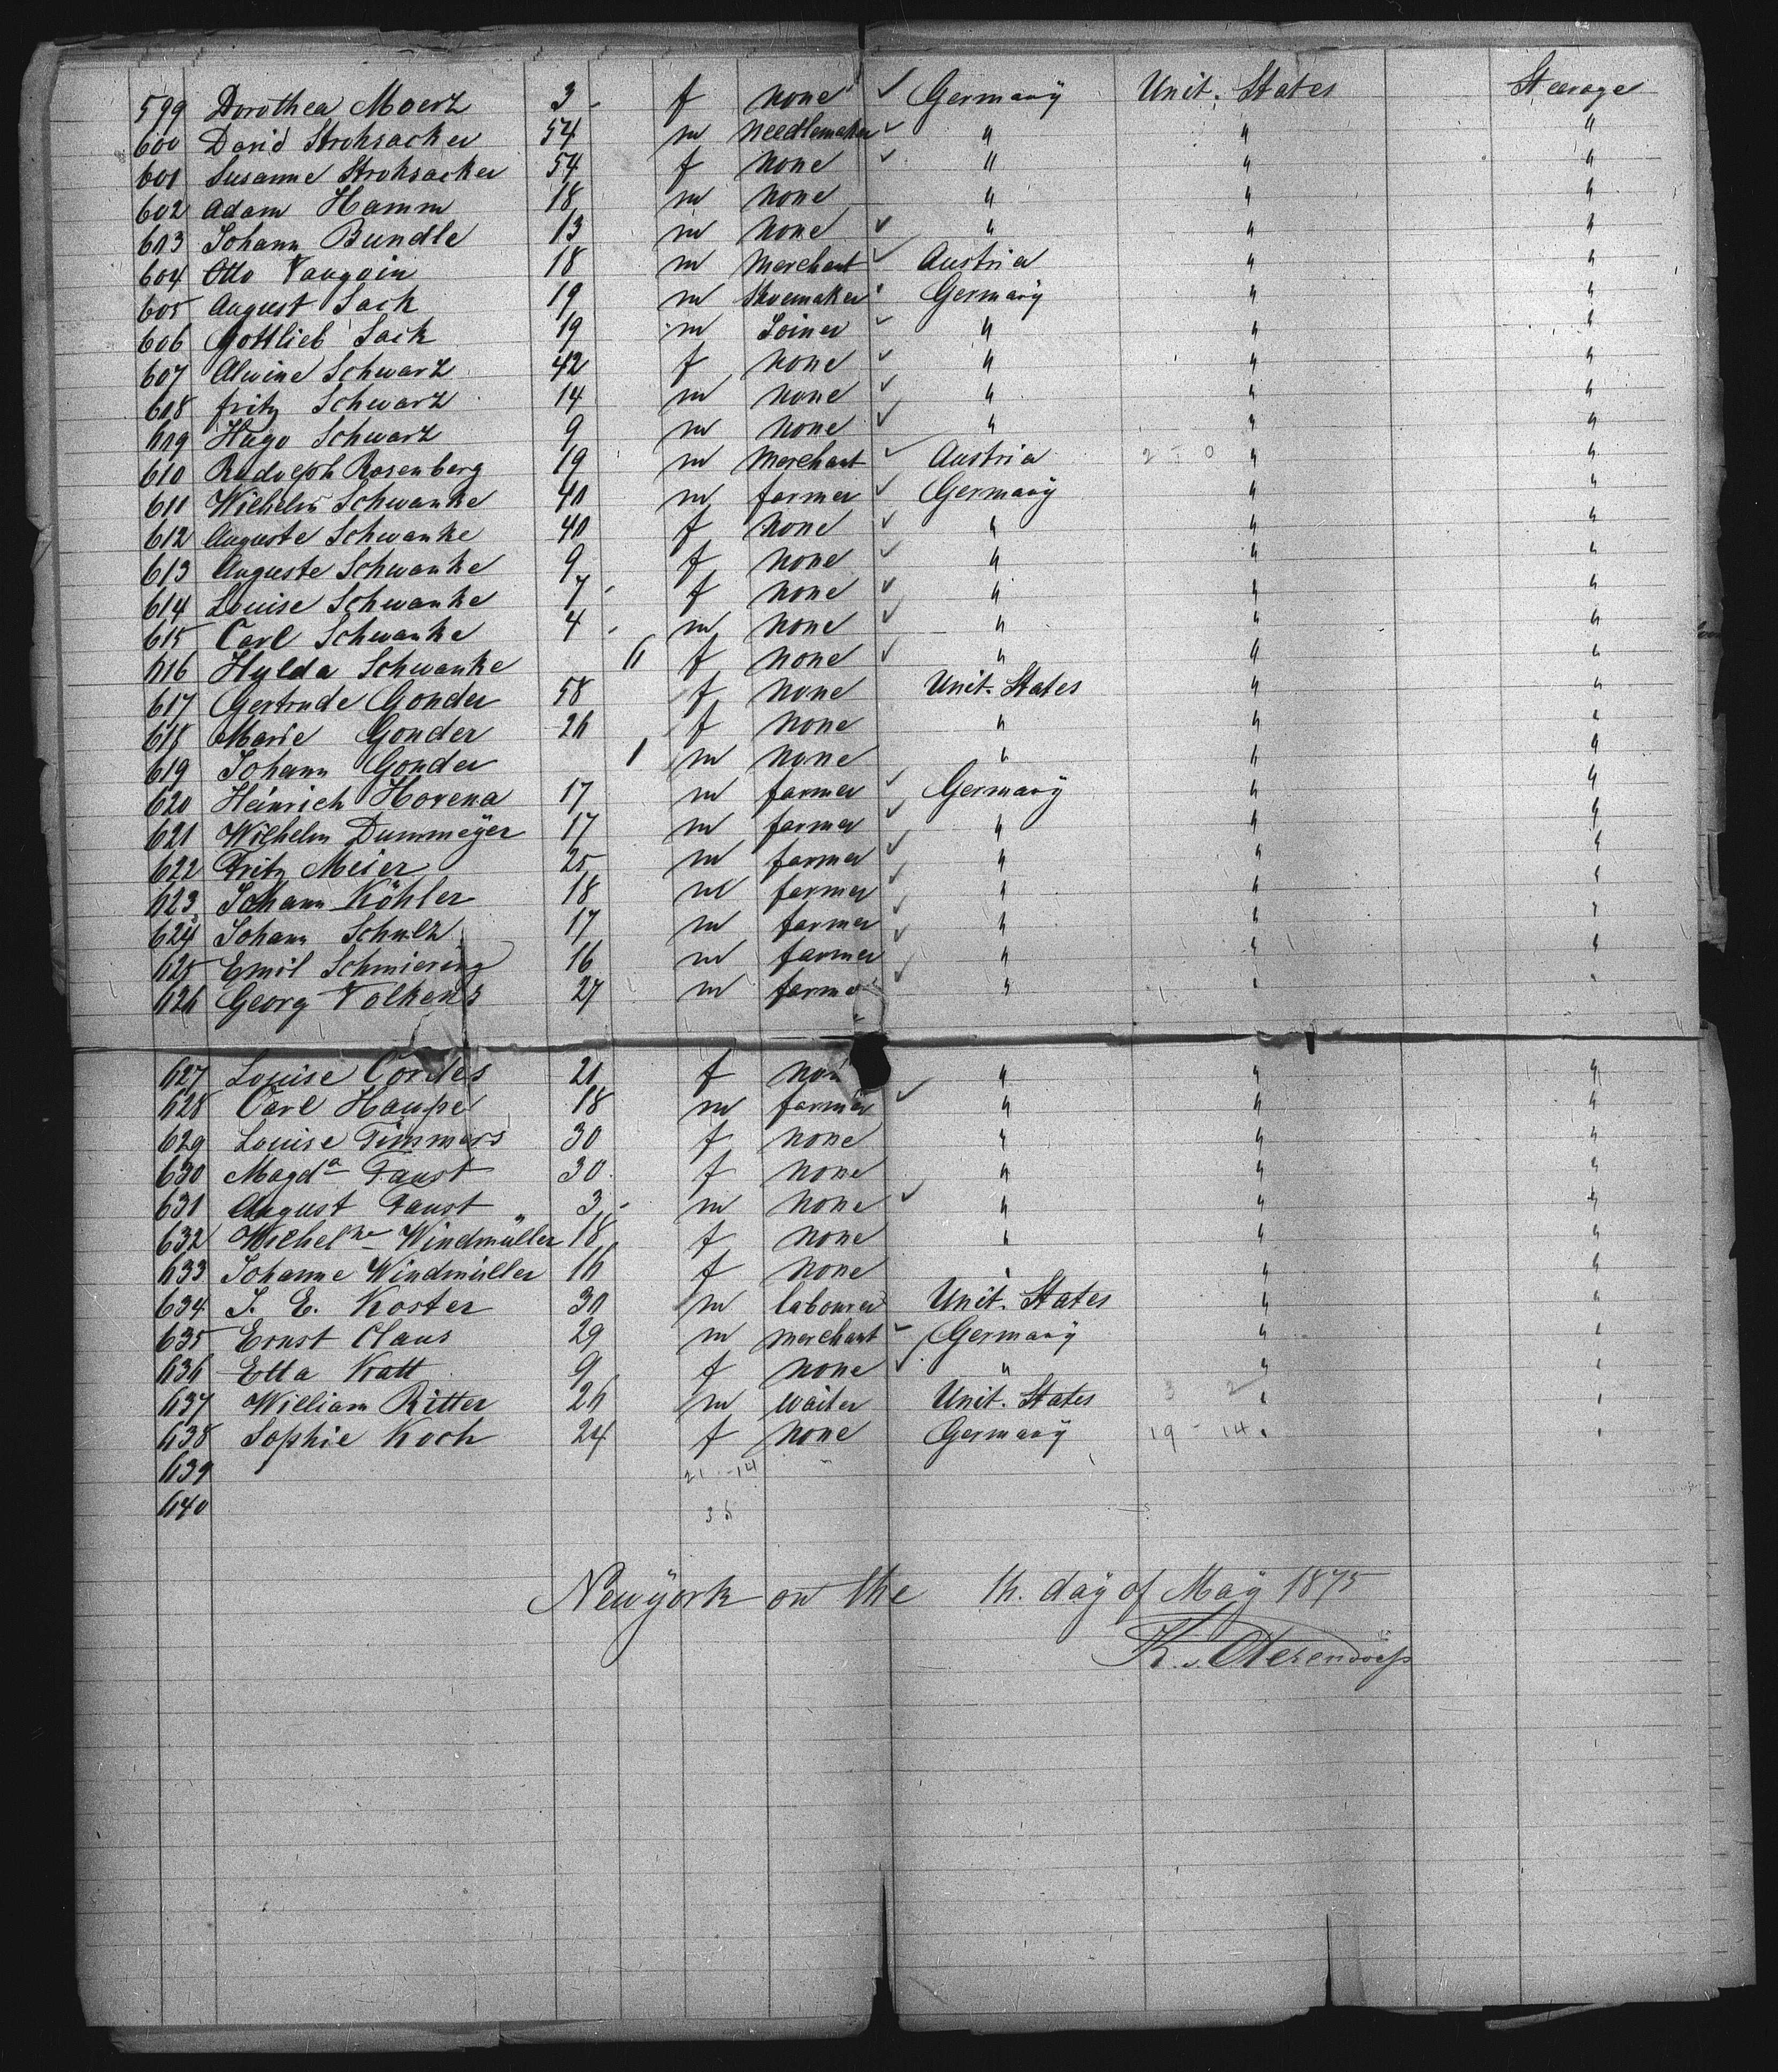 599 Dorothea Moerz 3 - f none ✓ Germany Unit. States Steerage
600 David Strohsacker 54 m needlemaker ✓ " " "
601 Susanne Strohsacker 54 f none ✓ " " "
602 Adam Hamm 18 m none " " "
603 Johann Bundle 13 m none ✓ " " "
604 Otto Vaugoin 18 m merchant ✓ Austria " "
605 August Sack 19 m Shoemaker Germany " "
606 Gottlieb Sack 19 m Joiner ✓ " " "
607 Alwine Schwarz 42 f none ✓ " " "
608 Fritz Schwarz 14 m none ✓ " " "
609 Hugo Schwarz 9 m none ✓ " " "
610 Rudolph Rosenberg 19 m merchant ✓ Austria " "
611 Wilhelm Schwanke 40 m farmer ✓ Germany " "
612 Auguste Schwanke 40 f none ✓ " " "
613 Auguste Schwanke 9 f none ✓ " " "
614 Louise Schwanke 7 - f none ✓ " " "
615 Carl Schwanke 4 - m none ✓ " " "
616 Hylda Schwanke f none ✓ " " "
617 Gertrude Gonder 58 f none Unit. States " "
618 Marie Gonder 26 f none " " "
619 Johann Gonder 1 m none " " "
620 Heinrich Horena 17 m farmer ✓ Germany " "
621 Wilhelm Dummeÿer 17 m farmer ✓ " " "
622 Fritz Meier 25 m farmer ✓ " " "
623 Johann Köhler 18 m farmer ✓ " " "
624 Johann Schulz 17 m farmer ✓ " " "
625 Emil Schmiering 16 m farmer ✓ " " "
626 Georg Volkens 27 m farme ✓ " " "
627 Louise Cordes 20 f non " " "
628 Carl Haupe 18 m farmer ✓ " " "
629 Louise Timmers 30 f none " " "
630 Magda Faust 30 f none " " "
631 August Faust 3 - m none ✓ " " "
632 Wilhelne Windmüller 18 f none " " "
633 Johanne Windmüller 16 f none " " "
634 J. E. Koster 30 m labourer Unit. States " "
635 Ernst Claus 29 m merchant ✓ Germany " "
636 Etta Kratt 9 f none ✓ " " "
637 William Ritter 26 m waiter Unit. States 3 2 " "
638 Sophie Koch 24 f none Germany 19 - 14 " "
639 21 - 14
640
Newÿork on the 16. daÿ of Maÿ 1875